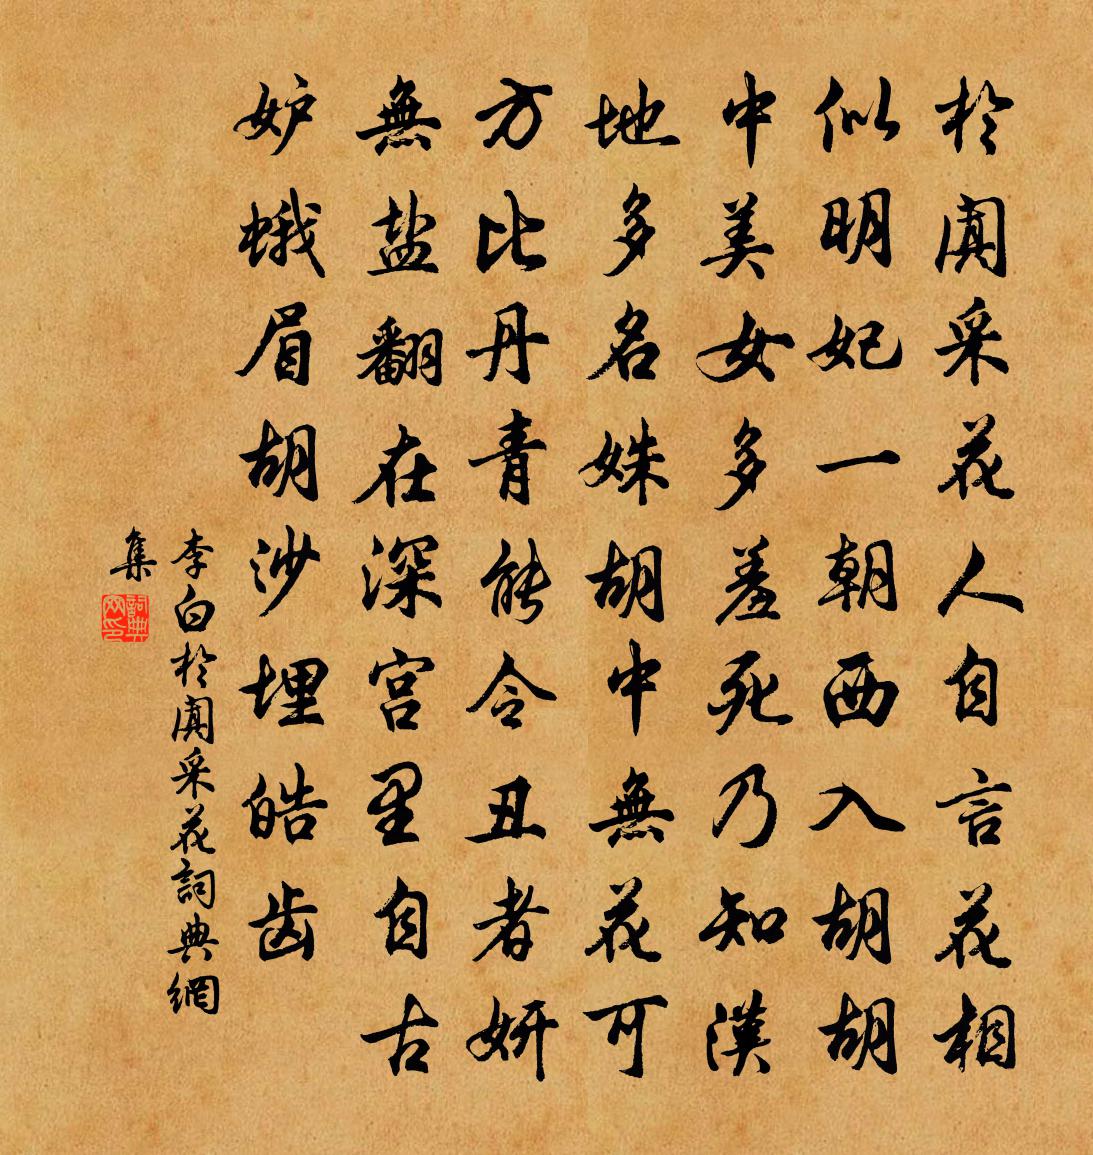 於闐采花人自言花相
似明妃一朝西入胡胡
中美女多羞死乃知漢
地多名姝胡中無花可
方比丹青能令丑者妍
無盐翻在深宫里自古
妒蛾眉胡沙埋皓齿
李白於闐采花詞典網
集
詞典网印